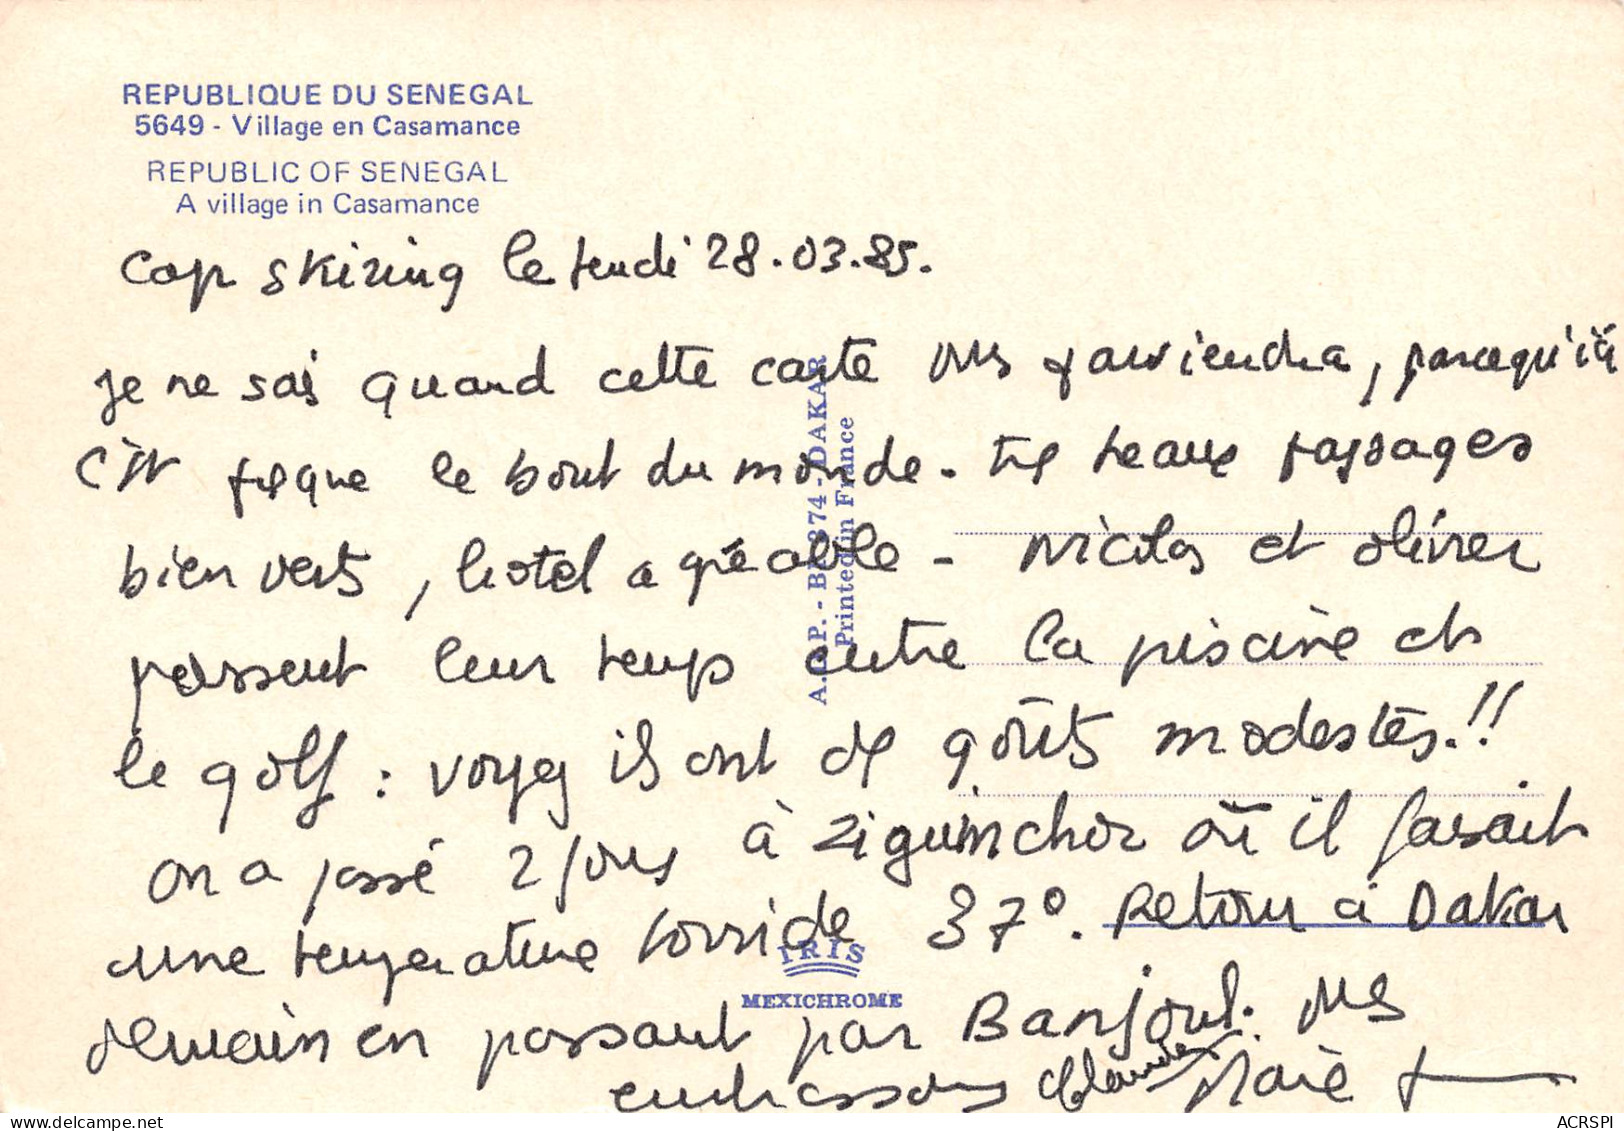 REPUBLIQUE DU SENEGAL
5649 - Village en Casamance
REPUBLIC OF SENEGAL
A village in Casamance
Cap Skiring le Jeudi 28.03.85.
Je ne sais quand cette carte vous parviendra, parcequ'ici
c'est presque le bout du monde. très beaux paysages
bien verts, hotel agréable - Nicolas et Olivier
passent leur temps entre la piscine et
le golf : voyez ils ont des goûts modestes.!!
On a passé 2 jours à Ziguinchor où il faisait
une température torride 37°. Retour à Dakar
demain en passant par Banjoul. Nous
embrassons Claude Marie
A.G.P. - BP 374 - DAKAR
Printed in France
IRIS
MEXICHROME
ACRSPI